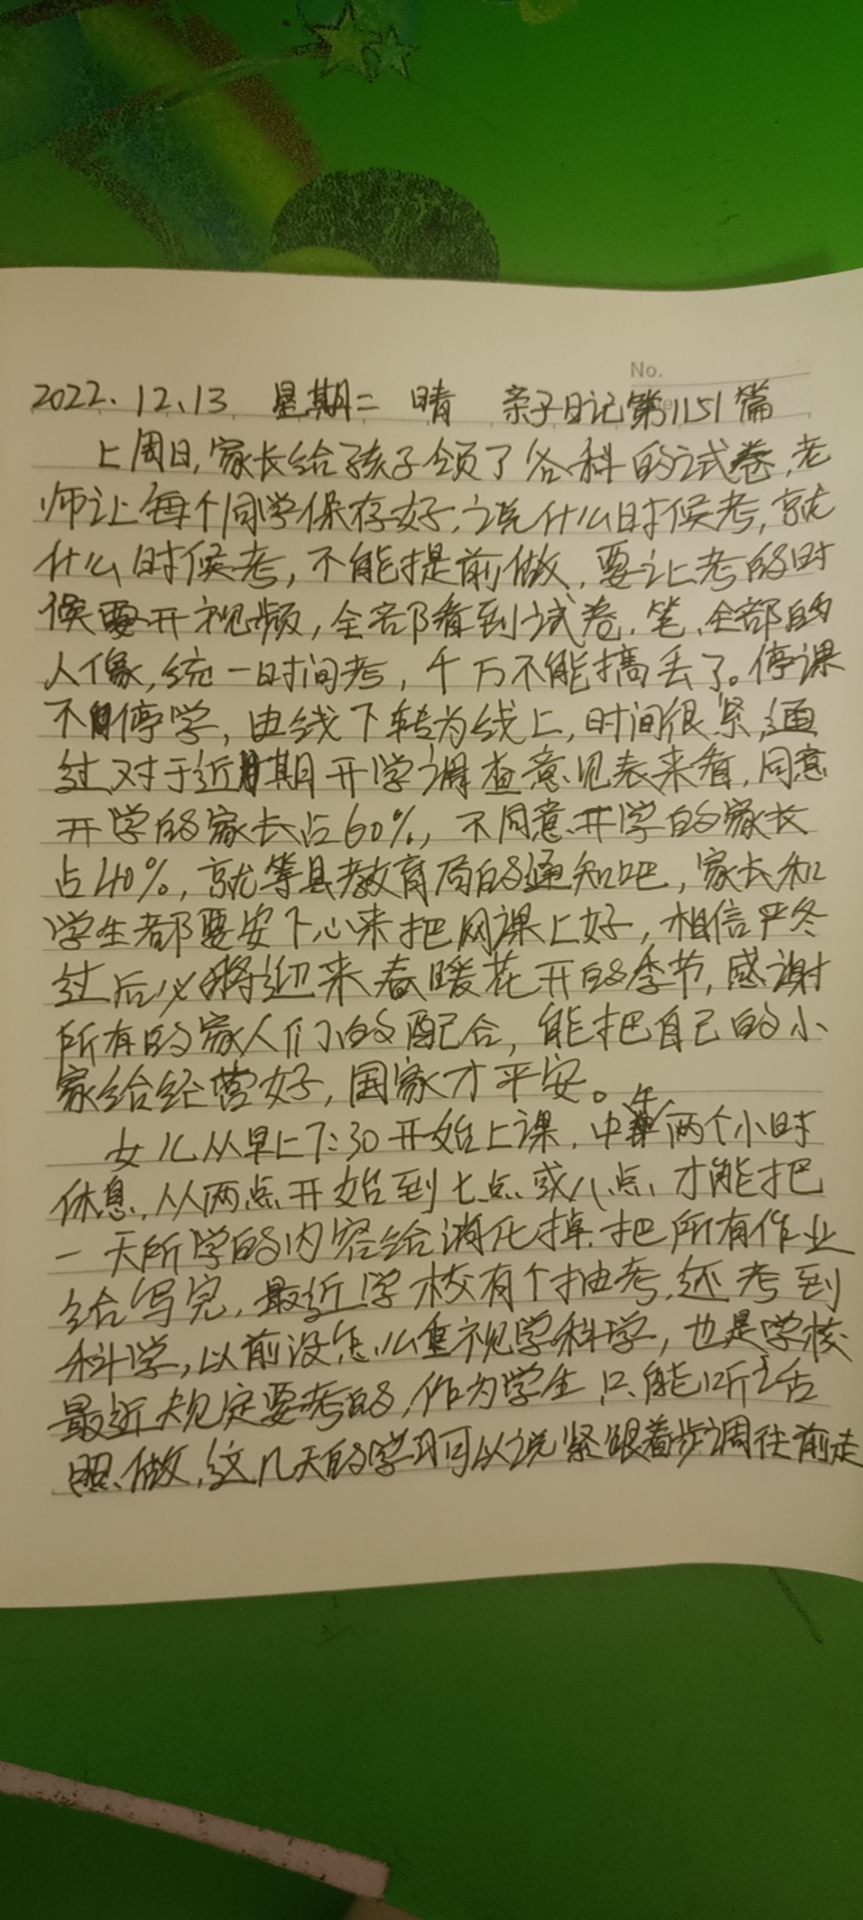 No.
2022.12.13 星期二 晴 亲子日记第1151篇
上周日,家长给孩子领了各科的试卷,老
师让每个同学保存好,说什么时候考,就
什么时候考,不能提前做,要让考的时
候要开视频,全部看到试卷、笔、全部的
人像,统一时间考,千万不能搞丢了。停课
不停学,由线下转为线上,时间很紧,通
过对于近期开学调查意见表来看,同意
开学的家长占60%,不同意开学的家长
占40%,就等县教育局的通知吧,家长和
学生都要安下心来把网课上好,相信严冬
过后必将迎来春暖花开的季节,感谢
所有的家人们的配合,能把自己的小
家给经营好,国家才平安。
女儿从早上7:30开始上课,中午两个小时
休息,从两点开始到七点或八点,才能把
一天所学的内容给消化掉,把所有作业
给写完,最近学校有个抽考,还考到
科学,以前没怎么重视学科学,也是学校
最近规定要考的,作为学生,只能听话
照做,这几天的学习可以说紧跟着步调往前走